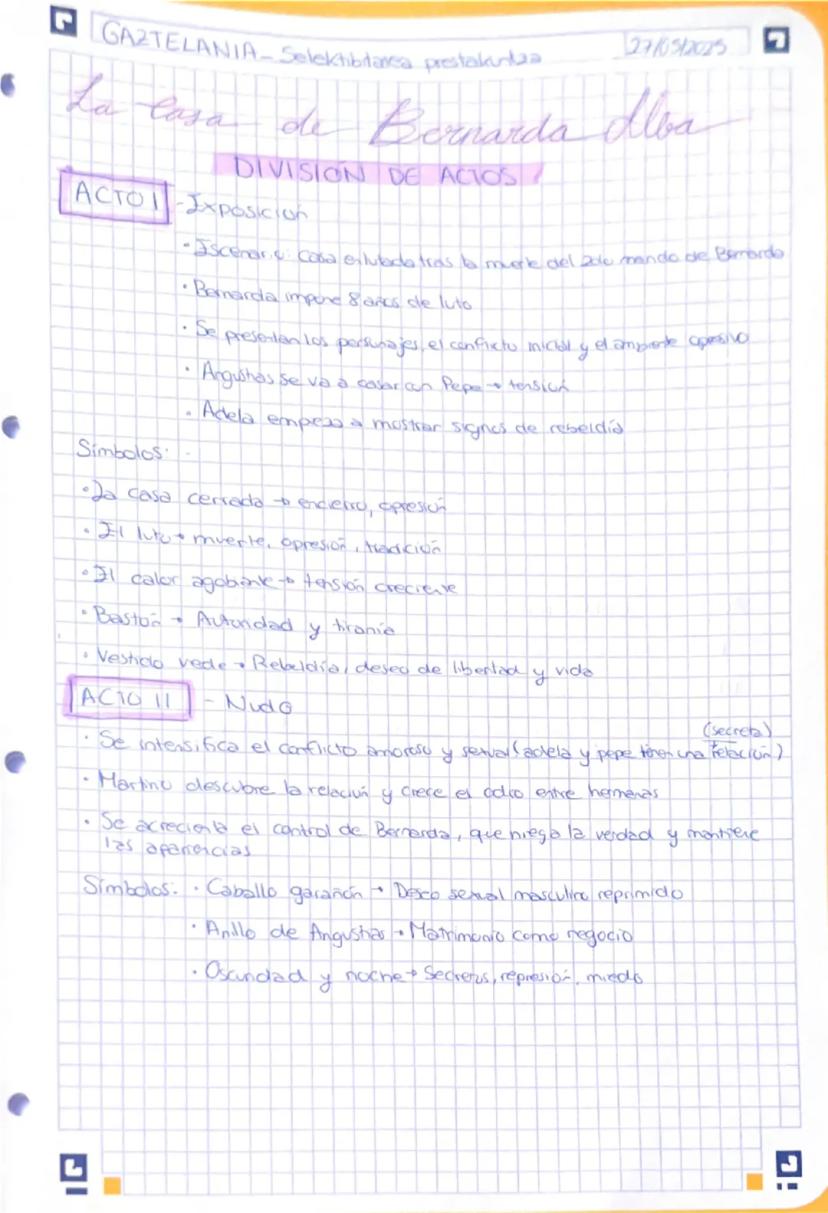 GAZTELANIA - Selektibitatea prestakuntza
27/05/2025
La Casa de Bernarda Alba
DIVISIÓN DE ACTOS
ACTO I - Exposición
- Escenario: Casa enlutada tras la muerte del 2do marido de Bernarda
· Bernarda impone 8 años de luto
· Se presentan los personajes, el conflicto inicial y el ambiente opresivo
· Angustias se va a casar con Pepe → tensión
· Adela empeza a mostrar signos de rebeldía
Símbolos:
· La casa cerrada → encierro, opresión
· El luto → muerte, opresión, tradición
· El calor agobiante → tensión creciente
· Bastón → Autoridad y tiranía
· Vestido vede → Rebeldía, deseo de libertad y vida
ACTO II - Nudo
(secreta)
· Se intensifica el conflicto amoroso y sexual (adela y pepe tienen una relación)
· Martirio descubre la relación y crece el odio entre hermanas
· Se acrecienta el control de Bernarda, que niega la verdad y mantiene
las apariencias
Símbolos: · Caballo garañón → Deseo sexual masculino reprimido
· Anillo de Angustias → Matrimonio como negocio
· Oscuridad y noche → Secretos, represión, miedo